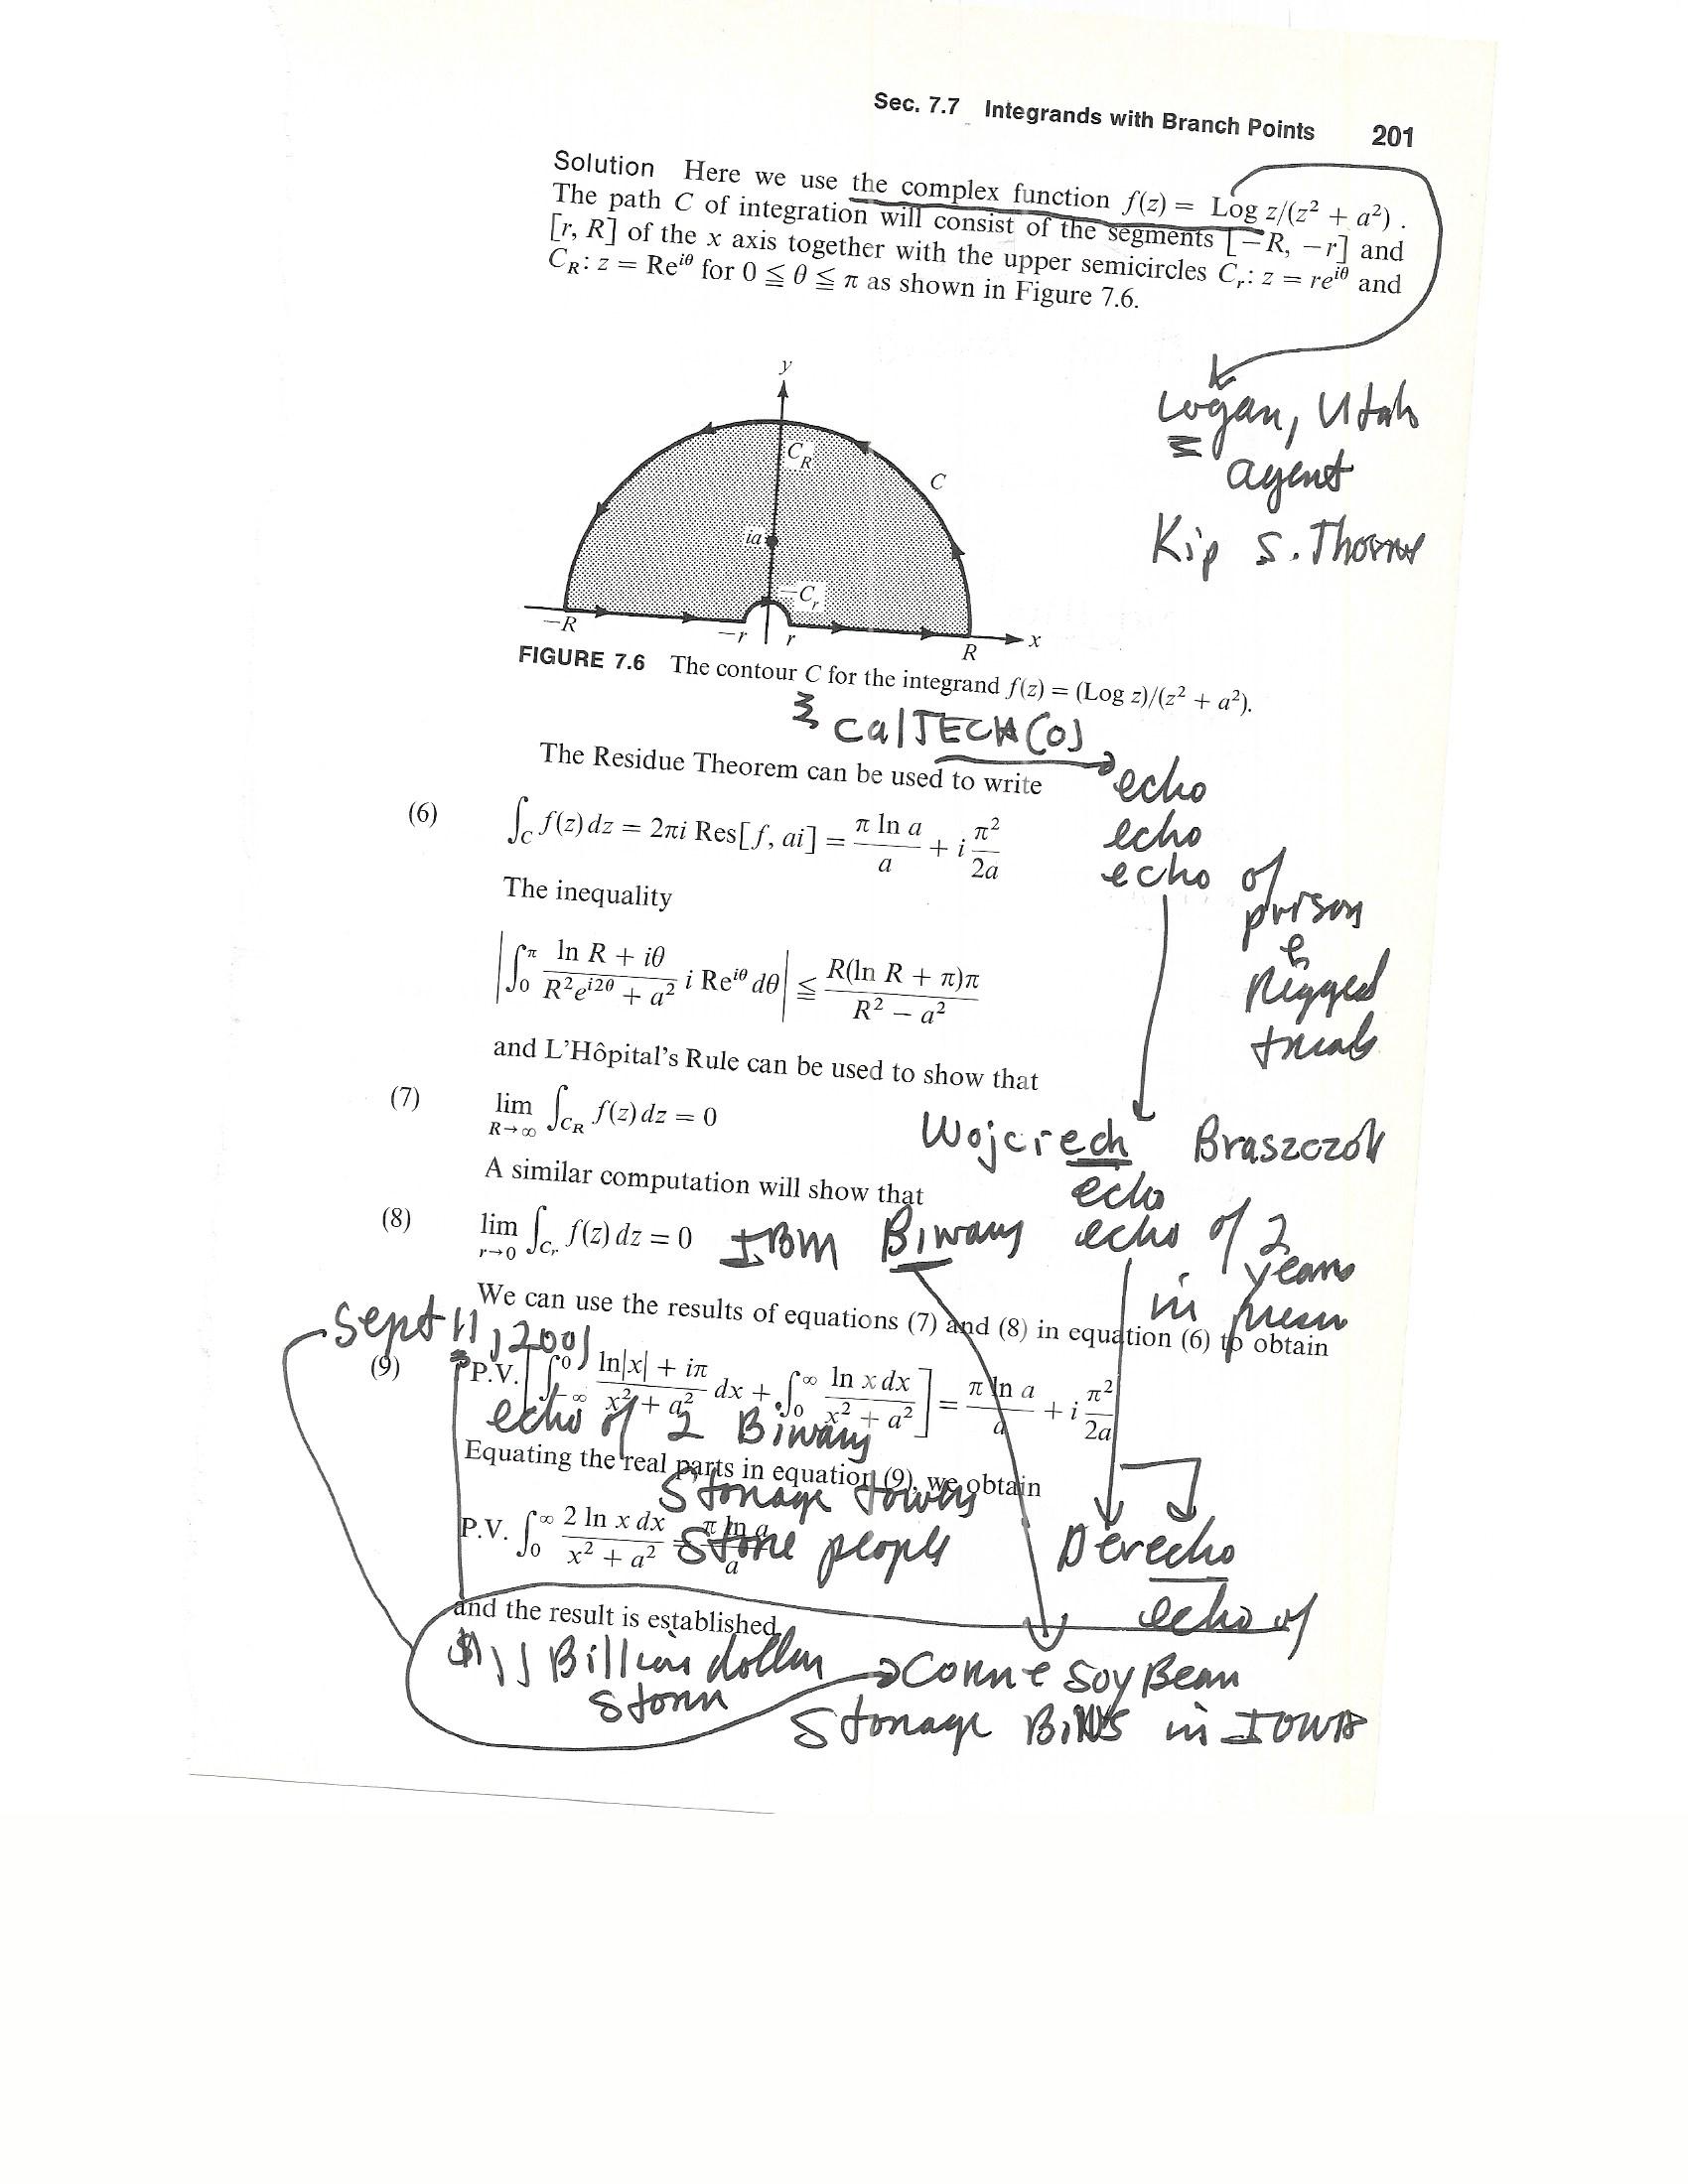 Sec. 7.7 Integrands with Branch Points 201
Solution Here we use the complex function f(z) = Log z/(z² + a²) .
The path C of integration will consist of the segments [−R, −r] and
[r, R] of the x axis together with the upper semicircles Cᵣ: z = reⁱᶿ and
C_R: z = Reⁱᶿ for 0 ≦ θ ≦ π as shown in Figure 7.6.
Logan, Utah
agent
Kip S. Thorne
y
C_R
C
ia
−Cᵣ
−R
−r
r
R
x
FIGURE 7.6 The contour C for the integrand f(z) = (Log z)/(z² + a²).
CalTECH(O)
The Residue Theorem can be used to write
echo
(6) ∫_C f(z) dz = 2πi Res[f, ai] = π ln a / a + i π²/2a
echo
echo of
prison
&
Rigged
trials
The inequality
|∫₀^π (ln R + iθ)/(R²e^{i2θ} + a²) i Reⁱᶿ dθ| ≦ R(ln R + π)π/(R² − a²)
and L'Hôpital's Rule can be used to show that
(7) lim R→∞ ∫_{C_R} f(z) dz = 0
Wojciech Braszczok
A similar computation will show that
echo
(8) lim r→0 ∫_{Cᵣ} f(z) dz = 0
IBM Binary echo of 2
years
in prison
We can use the results of equations (7) and (8) in equation (6) to obtain
Sept 11, 2001
(9) P.V. [∫_{−∞}^0 (ln|x| + iπ)/(x² + a²) dx + ∫₀^∞ ln x dx/(x² + a²)] = π ln a / a + i π²/2a
echo of 2 Binary
Equating the real parts in equation (9), we obtain
Storage towers
P.V. ∫₀^∞ 2 ln x dx/(x² + a²) = π ln a / a
Store people
Derecho
and the result is established.
echo of
$11 Billion dollar
storm
Corn & Soy Bean
Storage BiNs in IOWA